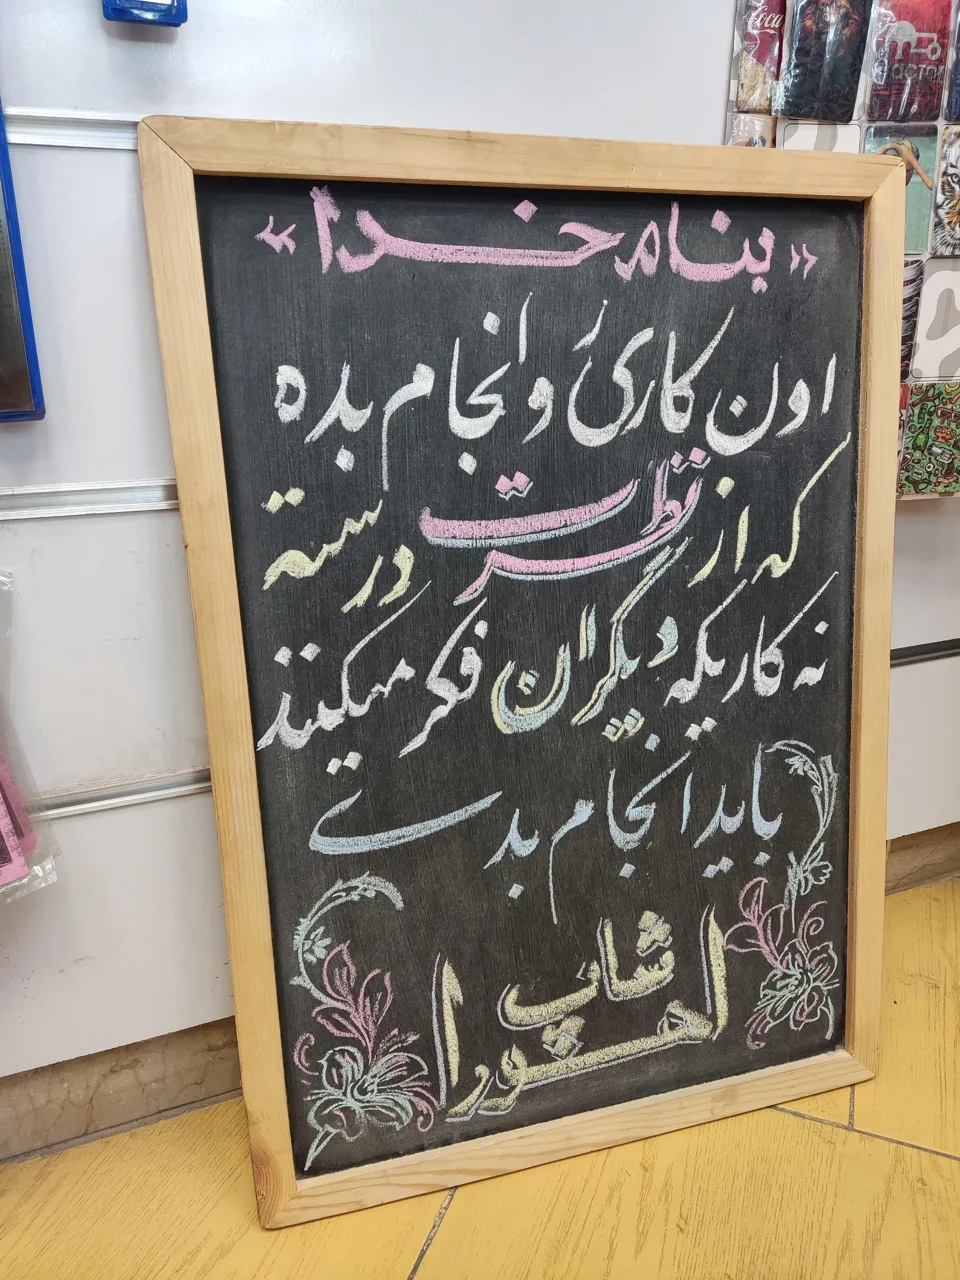 «بنام خدا»
اون کاری و انجام بده
که از نظرت درسته
نه کاریکه دیگران فکر میکنند
باید انجام بدی
شاپ
Coca